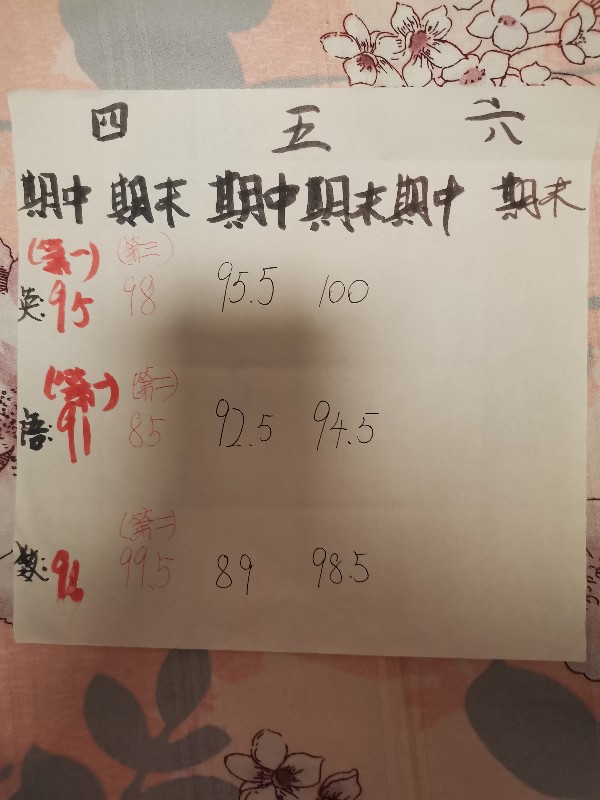 四 五 六
期中 期末 期中 期末 期中 期末
(第一) (第二)
英: 95 98 95.5 100
(第一) (第二)
语: 91 85 92.5 94.5
(第一)
数: 99.5 89 98.5